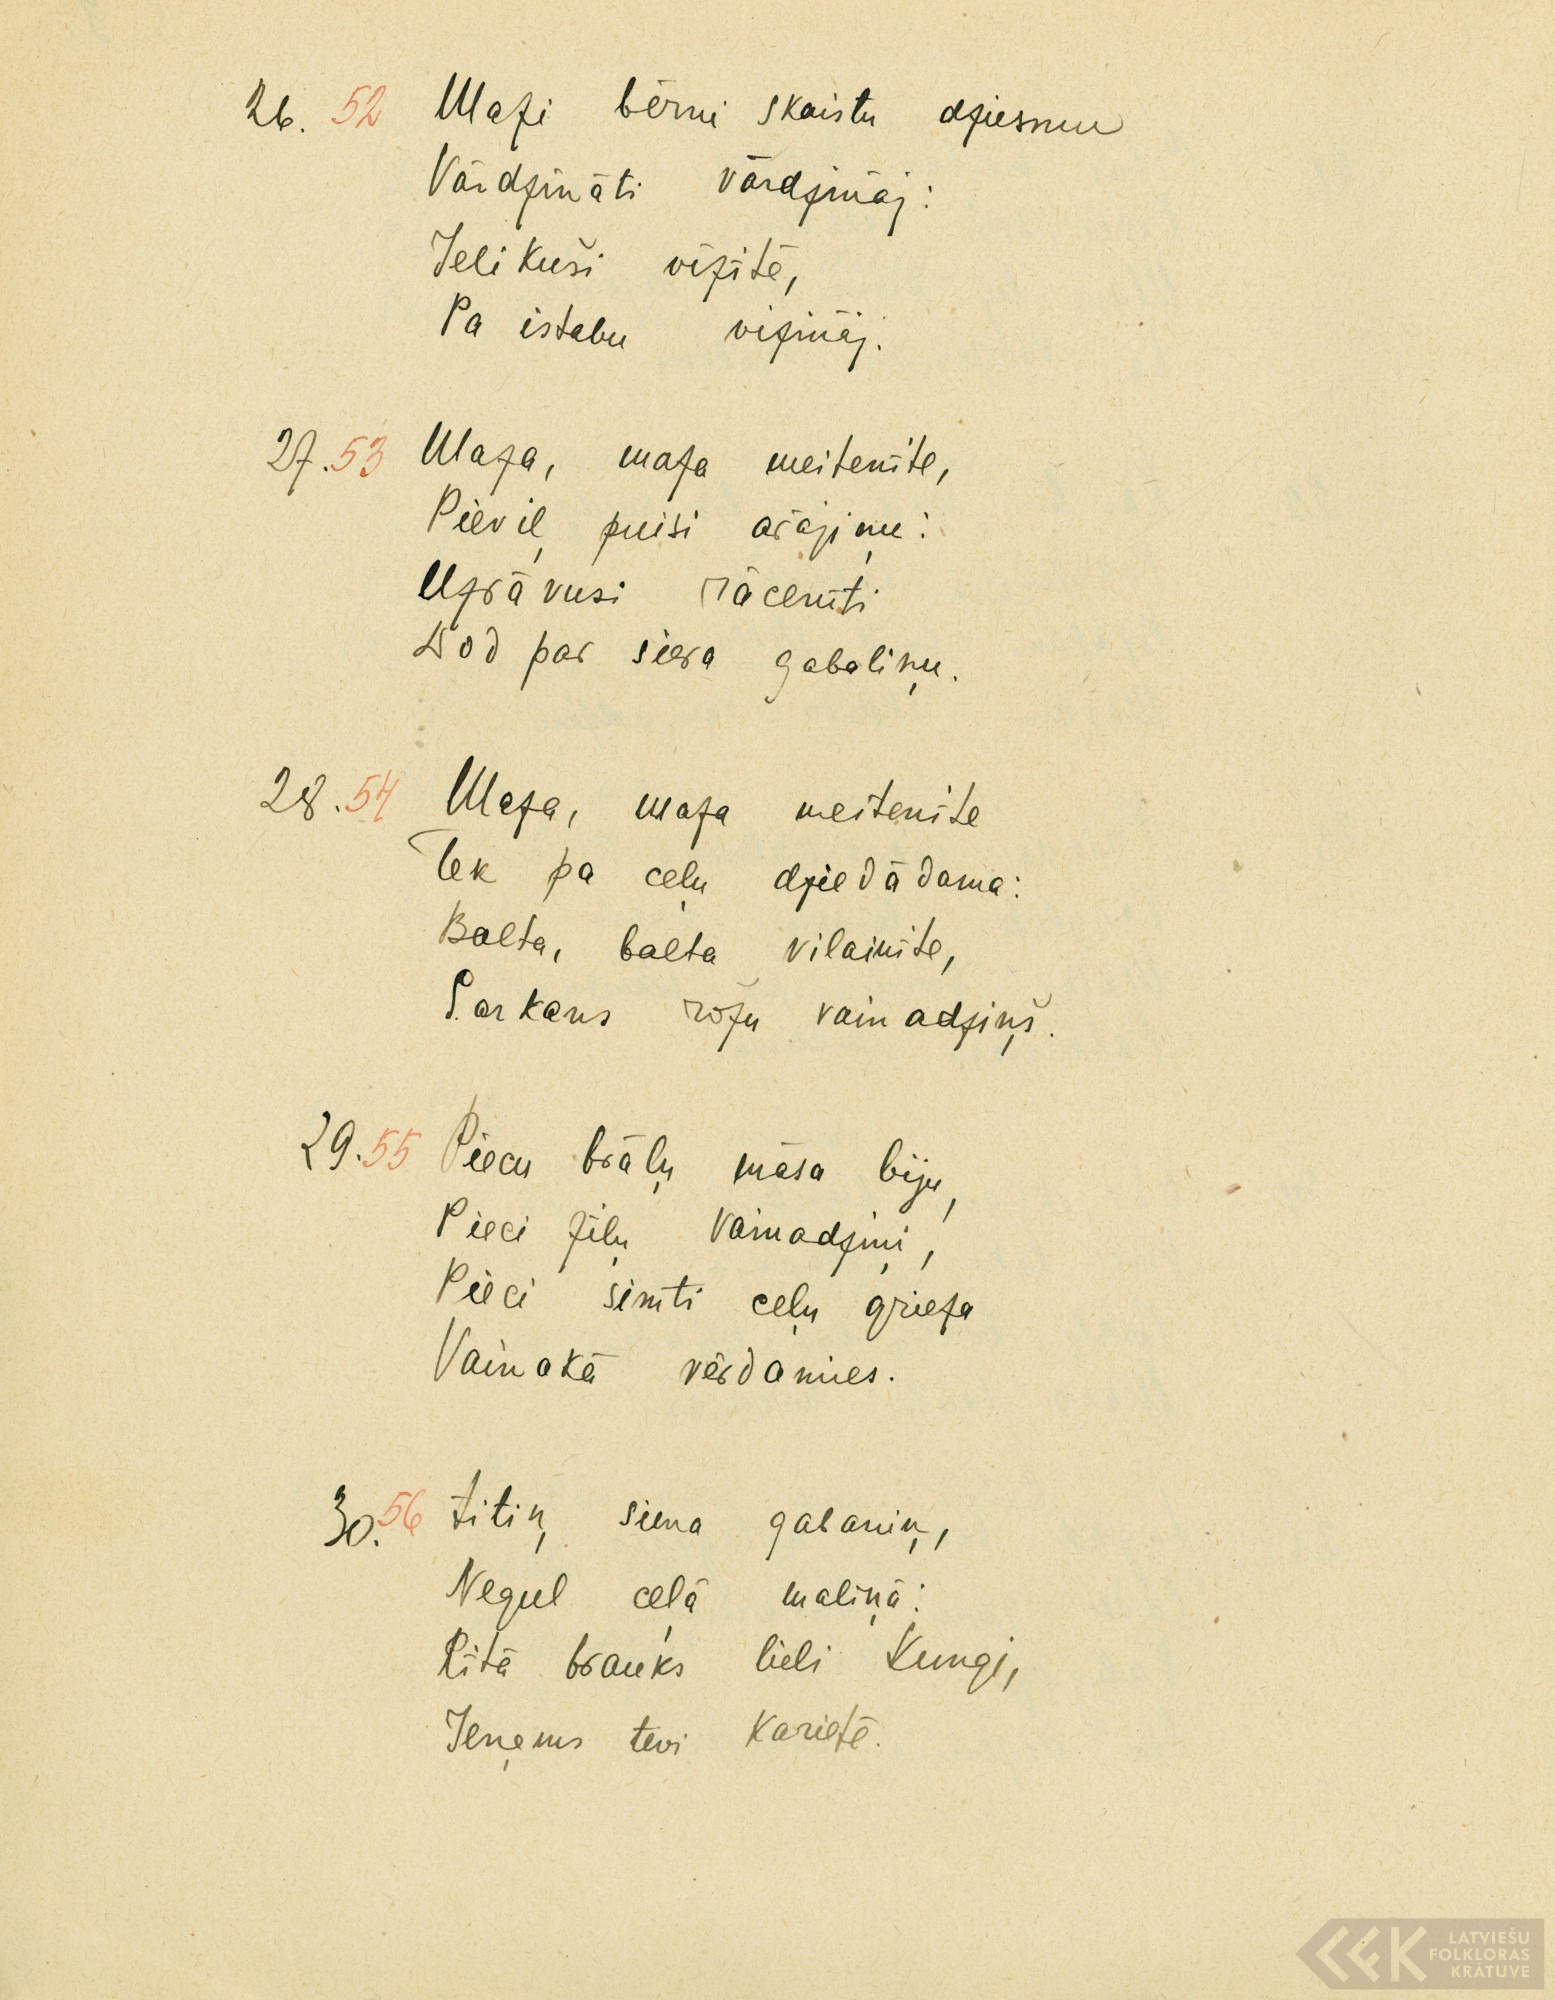 26. 52 Mazi bērni skaistu dziesmu
Vārdzināti vārdzināj:
Ielikuši vīzītē,
Pa istabu vizināj.
27. 53 Maza, maza meitenīte,
Pieviļ puisi arājiņu:
Uzrāvusi rācenīti
Dod par siera gabaliņu.
28. 54 Maza, maza meitenīte
Tek pa ceļu dziedādama:
Balta, balta vilainīte,
Sarkans rožu vainadziņš.
29. 55 Piecu brāļu māsa biju,
Pieci zīļu vainadziņi,
Pieci simti ceļu grieza
Vainakā vērdamies.
30. 56 Titiņ, siena gabaniņ,
Negul ceļā maliņā:
Rītā brauks lieli kungi,
Ieņems tevi karietē.
LATVIEŠU
FOLKLORAS
KRĀTUVE